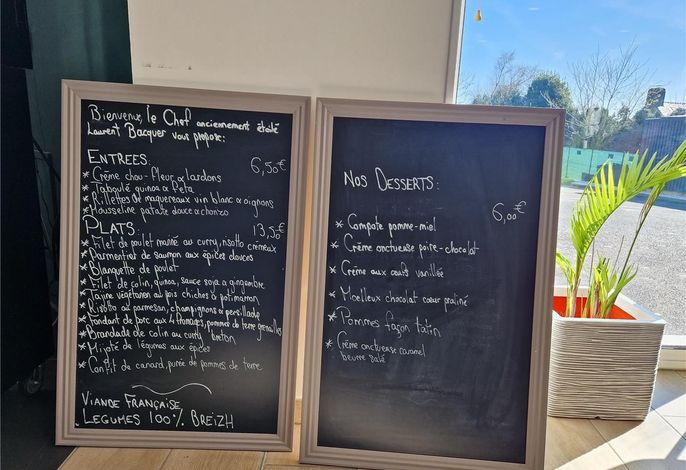 Bienvenue, le Chef anciennement étoilé
Laurent Bacquer vous propose:
ENTREES: 6,50€
* Crème chou-fleur & lardons
* Taboulé quinoa & feta
* Rillettes de maquereaux vin blanc & oignons
* Mousseline patate douce & chorizo
PLATS: 13,50€
* Filet de poulet mariné au curry, risotto crémeux
* Parmentier de saumon aux épices douces
* Blanquette de poulet
* Filet de colin, quinoa, sauce soja & gingembre
* Tajine végétarien aux pois chiches & potimarron
* Risotto au parmesan, champignons & persillade
* Fondant de porc aux 4 fromages, pommes de terre grenailles
* Brandade de colin au curry breton
* Mijoté de légumes aux épices
* Confit de canard, purée de pommes de terre
VIANDE FRANÇAISE
LEGUMES 100% BREIZH
NOS DESSERTS:
6,00€
* Compote pomme-miel
* Crème onctueuse poire-chocolat
* Crème aux oeufs vanillée
* Moelleux chocolat coeur praliné
* Pommes façon tatin
* Crème onctueuse caramel
beurre salé